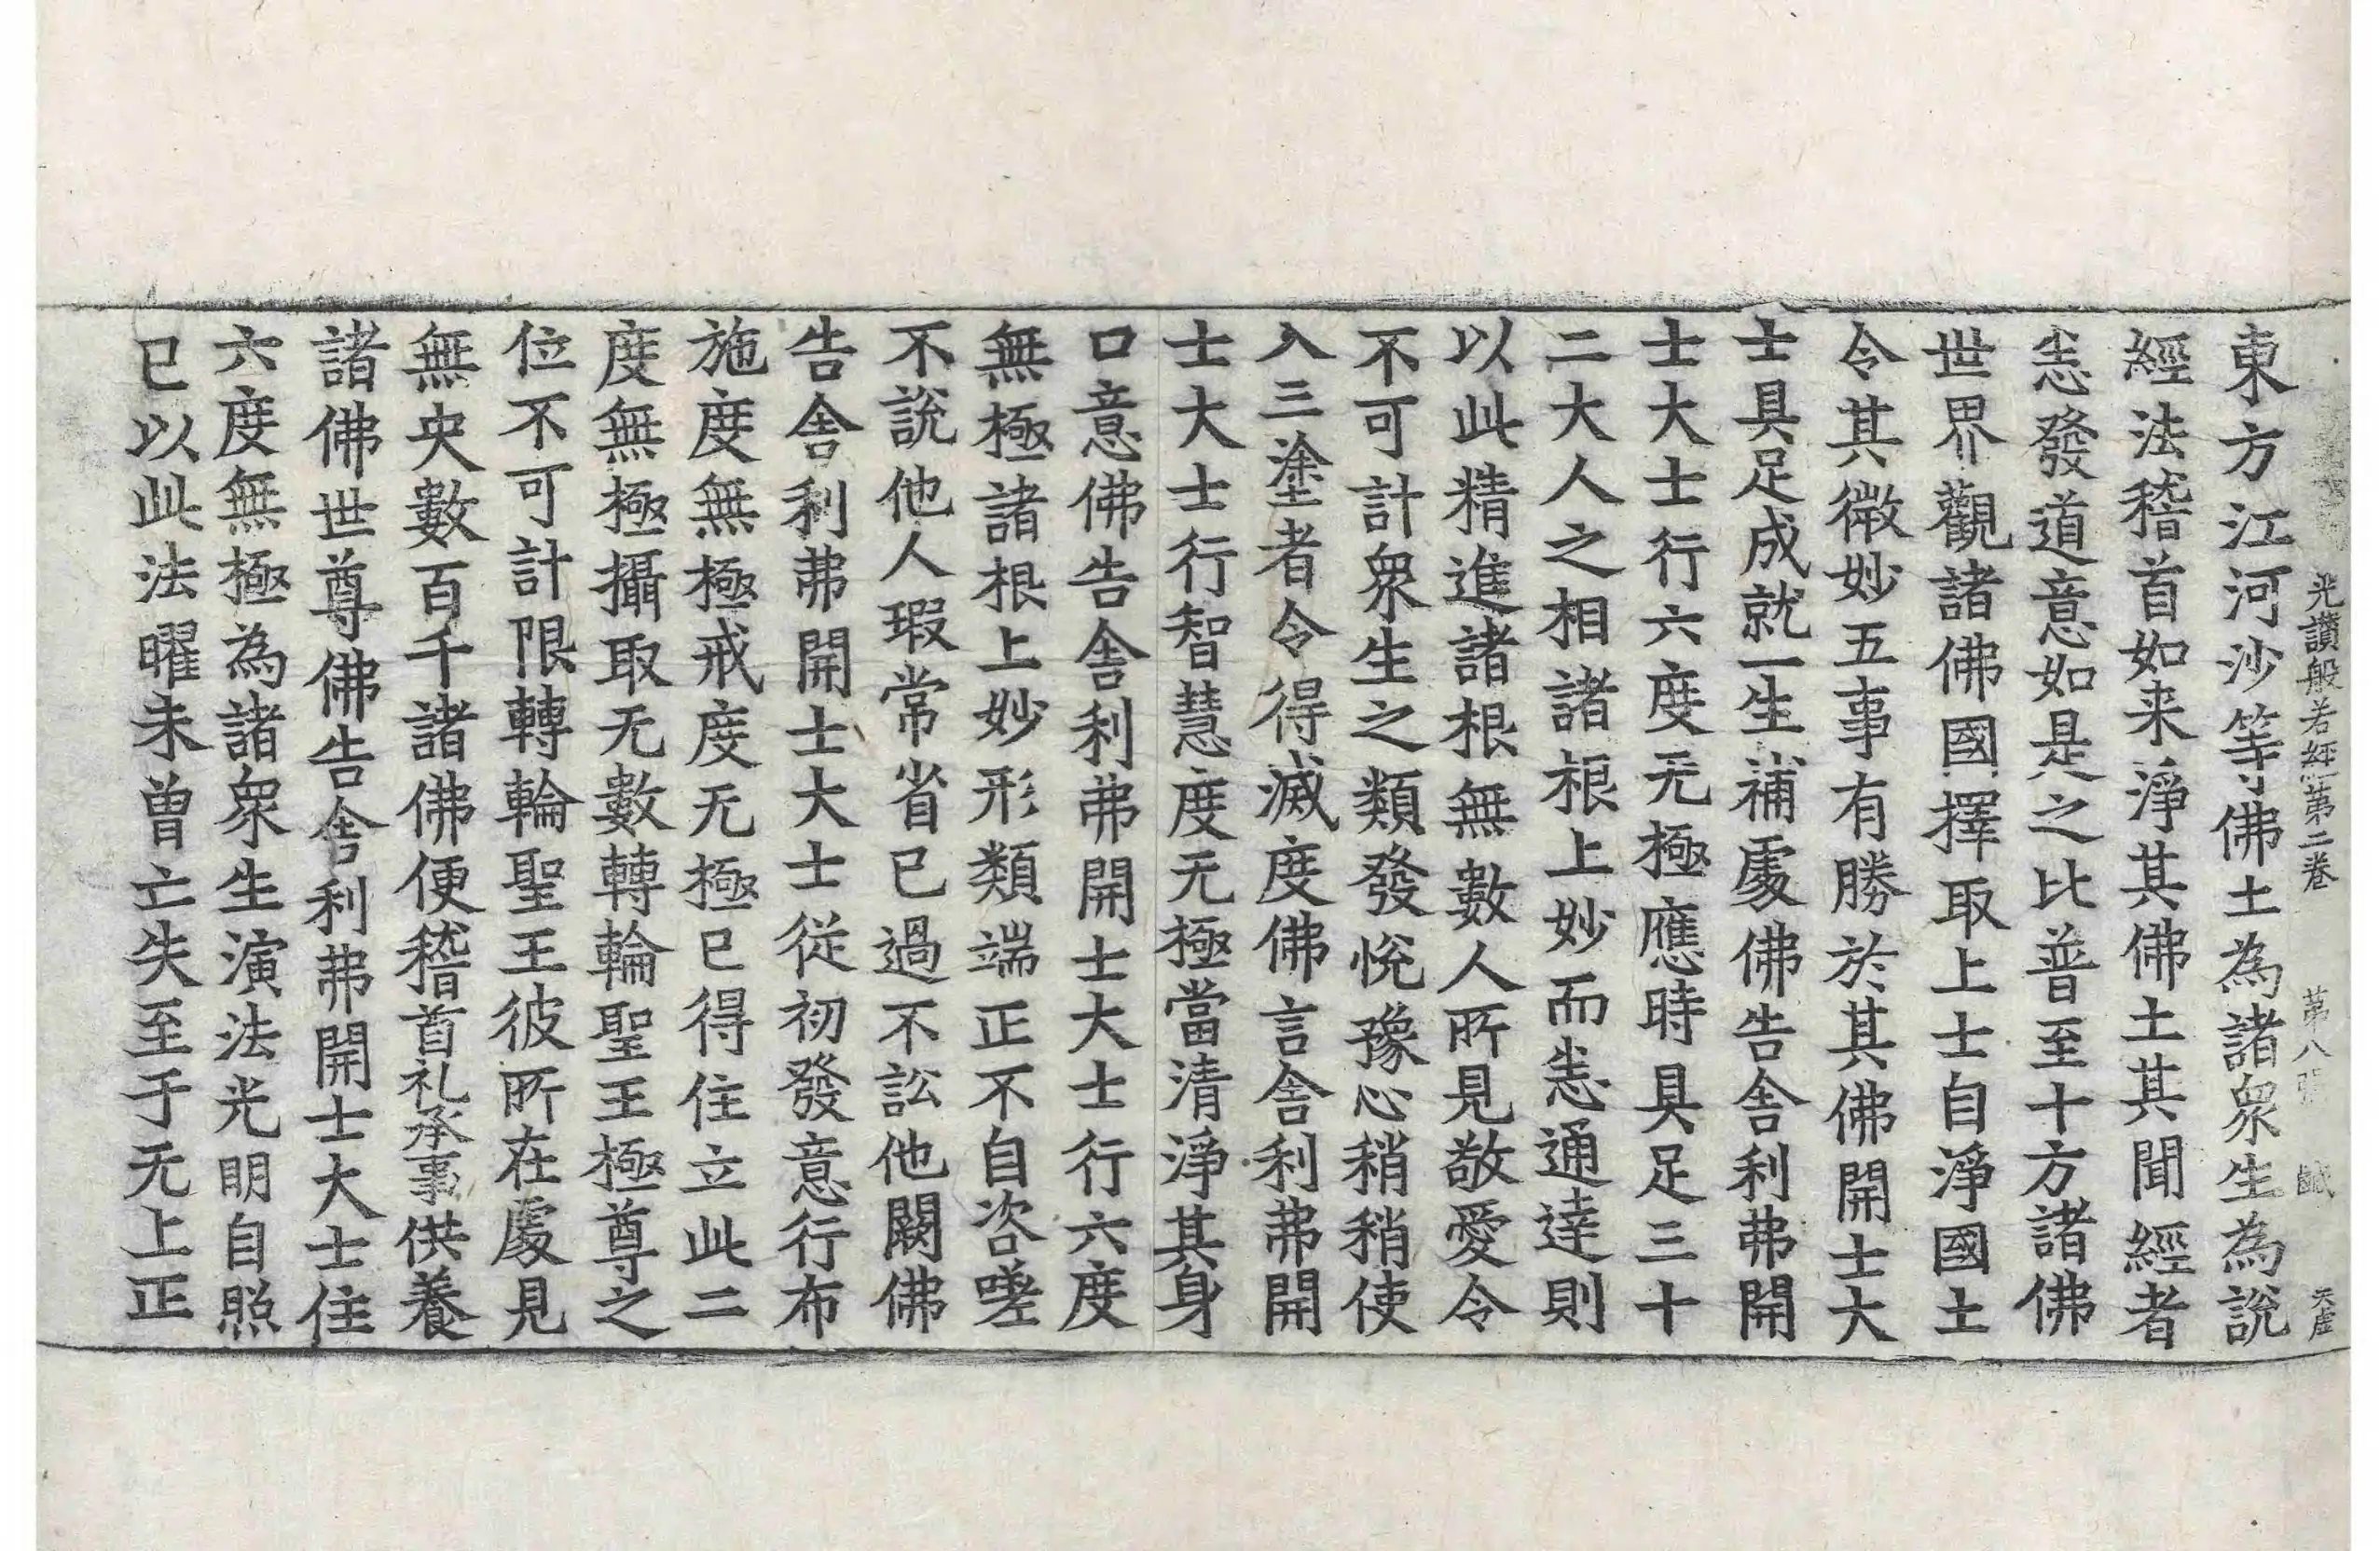 光讃般若經第二卷 第八張 鹹 天虛
東方江河沙等佛土為諸衆生為說
經法稽首如来淨其佛土其聞經者
恙發道意如是之比普至十方諸佛
世界觀諸佛國擇取上士自淨國土
令其微妙五事有勝於其佛開士大
士具足成就一生補處佛告舎利弗開
士大士行六度无極應時具足三十
二大人之相諸根上妙而恙通達則
以此精進諸根無數人所見敬愛令
不可計衆生之類發悅豫心稍稍使
入三塗者令得滅度佛言舎利弗開
士大士行智慧度无極當清淨其身
口意佛告舎利弗開士大士行六度
無極諸根上妙形類端正不自咨嗟
不說他人瑕常省已過不訟他闕佛
告舎利弗開士大士從初發意行布
施度無極戒度无極已得住立此二
度無極攝取无數轉輪聖王極尊之
位不可計限轉輪聖王彼所在處見
無央數百千諸佛便稽首礼承事供養
諸佛世尊佛告舎利弗開士大士住
六度無極為諸衆生演法光明自照
已以此法曜未曾亡失至于无上正